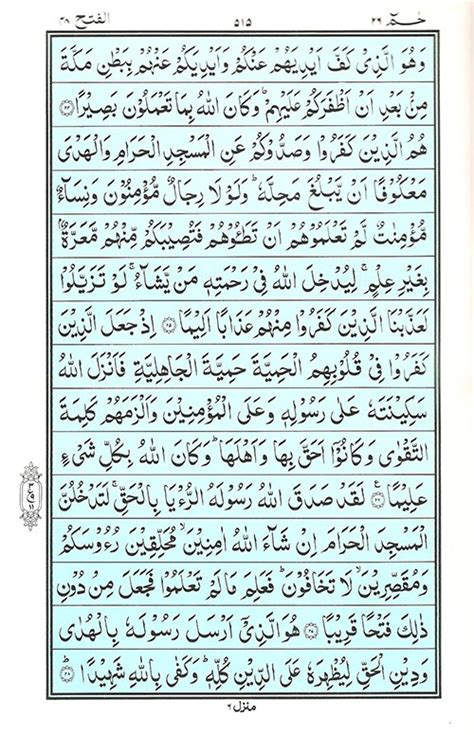 حٰمٓ ٢٦ ٥١٥ الفتح ٤٨
وَهُوَ الَّذِیْ كَفَّ اَیْدِیَهُمْ عَنْكُمْ وَاَیْدِیَكُمْ عَنْهُمْ بِبَطْنِ مَكَّةَ
مِنْۢ بَعْدِ اَنْ اَظْفَرَكُمْ عَلَیْهِمْ ؕ وَكَانَ اللّٰهُ بِمَا تَعْمَلُوْنَ بَصِیْرًا ﴿۲۴﴾
هُمُ الَّذِیْنَ كَفَرُوْا وَصَدُّوْكُمْ عَنِ الْمَسْجِدِ الْحَرَامِ وَالْهَدْیَ
مَعْكُوْفًا اَنْ یَّبْلُغَ مَحِلَّهٗ ؕ وَلَوْلَا رِجَالٌ مُّؤْمِنُوْنَ وَنِسَآءٌ
مُّؤْمِنٰتٌ لَّمْ تَعْلَمُوْهُمْ اَنْ تَطَـُٔوْهُمْ فَتُصِیْبَكُمْ مِّنْهُمْ مَّعَرَّةٌۢ
بِغَیْرِ عِلْمٍ ۚ لِیُدْخِلَ اللّٰهُ فِیْ رَحْمَتِهٖ مَنْ یَّشَآءُ ۚ لَوْ تَزَیَّلُوْا
لَعَذَّبْنَا الَّذِیْنَ كَفَرُوْا مِنْهُمْ عَذَابًا اَلِیْمًا ﴿۲۵﴾ اِذْ جَعَلَ الَّذِیْنَ
كَفَرُوْا فِیْ قُلُوْبِهِمُ الْحَمِیَّةَ حَمِیَّةَ الْجَاهِلِیَّةِ فَاَنْزَلَ اللّٰهُ
سَكِیْنَتَهٗ عَلٰی رَسُوْلِهٖ وَعَلَی الْمُؤْمِنِیْنَ وَاَلْزَمَهُمْ كَلِمَةَ
التَّقْوٰی وَكَانُوْۤا اَحَقَّ بِهَا وَاَهْلَهَا ؕ وَكَانَ اللّٰهُ بِكُلِّ شَیْءٍ
عَلِیْمًا ﴿۲۶﴾ لَقَدْ صَدَقَ اللّٰهُ رَسُوْلَهُ الرُّءْیَا بِالْحَقِّ ۚ لَتَدْخُلُنَّ
الْمَسْجِدَ الْحَرَامَ اِنْ شَآءَ اللّٰهُ اٰمِنِیْنَ ۙ مُحَلِّقِیْنَ رُءُوْسَكُمْ
وَمُقَصِّرِیْنَ ۙ لَا تَخَافُوْنَ ؕ فَعَلِمَ مَا لَمْ تَعْلَمُوْا فَجَعَلَ مِنْ دُوْنِ
ذٰلِكَ فَتْحًا قَرِیْبًا ﴿۲۷﴾ هُوَ الَّذِیْۤ اَرْسَلَ رَسُوْلَهٗ بِالْهُدٰی
وَدِیْنِ الْحَقِّ لِیُظْهِرَهٗ عَلَی الدِّیْنِ كُلِّهٖ ؕ وَكَفٰی بِاللّٰهِ شَهِیْدًا ﴿۲۸﴾
منزل ٦